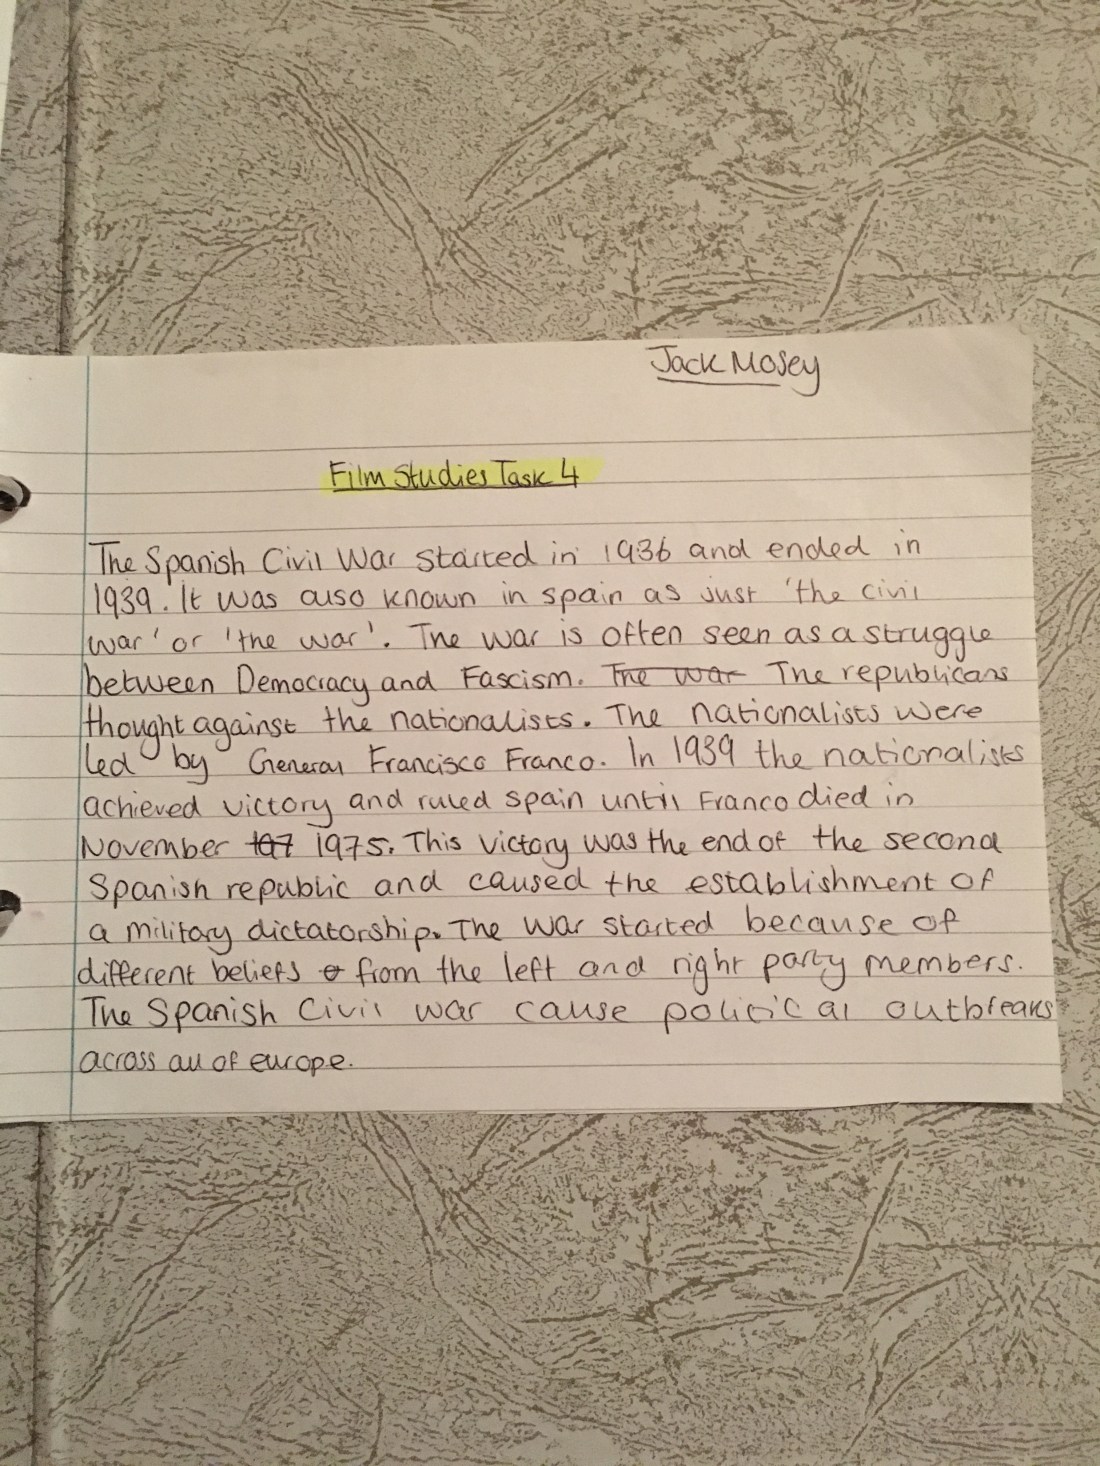 Jack Mosey
Film Studies Task 4
The Spanish Civil War started in 1936 and ended in
1939. It was also known in spain as just 'the civil
war' or 'the war'. The war is often seen as a struggle
between Democracy and Fascism. The war The republicans
thought against the nationalists. The nationalists were
led by General Francisco Franco. In 1939 the nationalists
achieved victory and ruled spain until Franco died in
November 197 1975. This victory was the end of the second
Spanish republic and caused the establishment of
a military dictatorship. The war started because of
different beliefs from the left and right party members.
The Spanish Civil war cause political outbreaks
across all of europe.